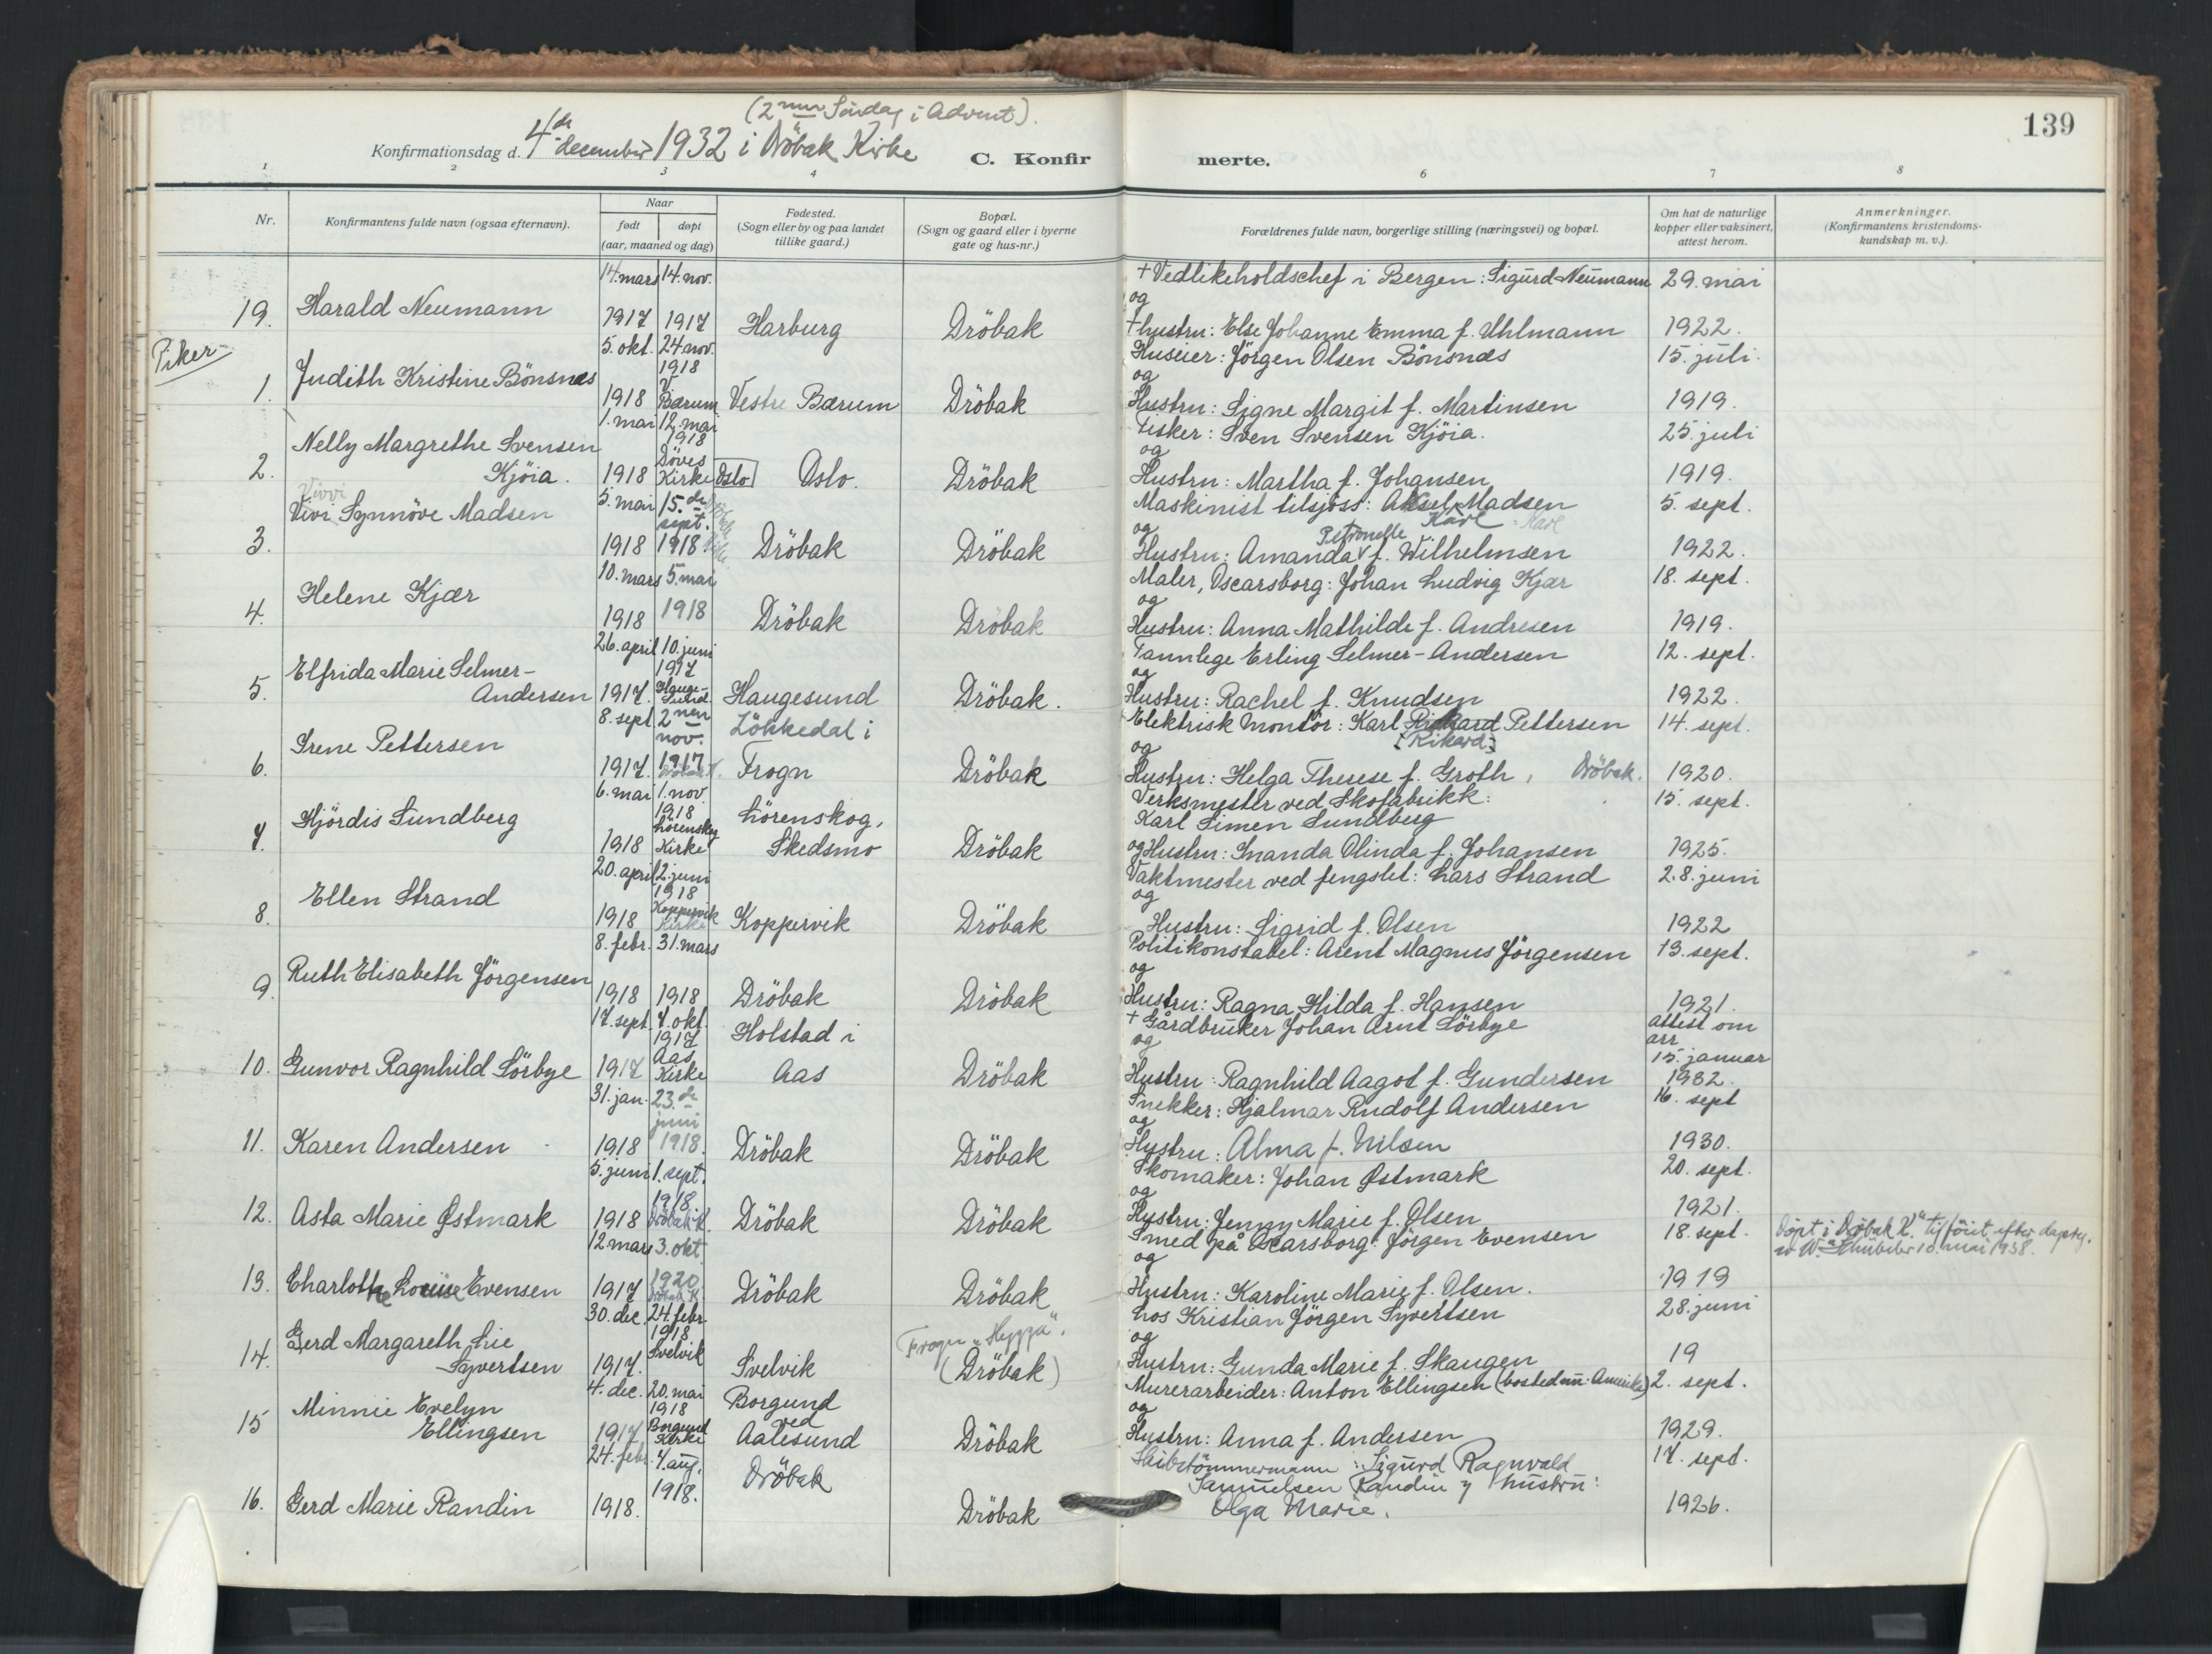 139
(2nen Søndag i Advent).
Konfirmationsdag d. 4de december 1932 i Dröbak Kirke C. Konfirmerte.
1 2 3 4 6 7 8
Nr. Konfirmantens fulde navn (ogsaa efternavn). Naar født døpt (aar, maaned og dag) Fødested. (Sogn eller by og paa landet tillike gaard.) Bopæl. (Sogn og gaard eller i byerne gate og hus-nr.) Forældrenes fulde navn, borgerlige stilling (næringsvei) og bopæl. Om hat de naturlige kopper eller vaksinert, attest herom. Anmerkninger. (Konfirmantens kristendomskundskap m. v.).
14. mars 14. nov. + Vedlikeholdschef i Bergen: Sigurd Neumann 29. mai
og
19. Harald Neumann 1917 1917 Harburg Dröbak + hustru: Else Johanne Emma f. Uhlmann 1922.
Piker
5. okt. 24 nov. Huseier: Jörgen Olsen Bönsnæs 15. juli.
1918 og
1. Judith Kristine Bönsnæs 1918 V. Bærum Vestre Bærum Dröbak Hustru: Signe Margit f. Martinsen 1919.
1. mai 12. mai Fisker: Sven Svensen Kjöia. 25. juli
Nelly Margrethe Svensen 1918 og
2. Kjöia. 1918 Döves Kirke Oslo Oslo. Dröbak Hustru: Martha f. Johansen 1919.
Vivvi
5. mai 15. de sept. Maskinist tilsjöss: Aksel Madsen 5. sept.
Karl Karl
og Petronelle
3. Vivi Synnöve Madsen 1918 1918 Dröbak Dröbak Hustru: Amanda f. Wilhelmsen 1922.
10. mars 5. mai Maler, Oscarsborg: Johan Ludvig Kjær 18. sept.
og
4. Helene Kjær 1918 1918 Dröbak Dröbak Hustru: Anna Mathilde f. Andresen 1919.
26. april 10. juni Tannlege Erling Selmer-Andersen 12. sept.
Elfrida Marie Selmer- 1917 og
5. Andersen 1917. Haugesund Haugesund Dröbak. Hustru: Rachel f. Knudsen 1922.
8. sept 2nen nov. Lökkedal i Elektrisk Montör: Karl Rickard Pettersen 14. sept.
[Rikard]
og
6. Irene Pettersen 1917. 1917 Dröbak K. Frogn Dröbak Hustru: Helga Therese f. Groth, Dröbak. 1920.
6. mai 1. nov. Verksmester ved Skofabrikk: 15. sept.
1918 Lörenskog, Karl Simen Sundberg
7. Hjördis Sundberg 1918 Lörenskog Kirke Skedsmo Dröbak og Hustru: Inanda Olinda f. Johansen 1925.
20. april 2. juni Vaktmester ved fengslet: Lars Strand 28. juni
1918 og
8. Ellen Strand 1918 Koppervik Kirke Koppervik Dröbak Hustru: Sigrid f. Olsen 1922
8. febr. 31. mars Politikonstabel: Arent Magnus Jörgensen 13. sept.
og
9. Ruth Elisabeth Jörgensen 1918 1918 Dröbak Dröbak Hustru: Ragna Hilda f. Hansen 1921.
17. sept. 7. okt. Holstad i + Gårdbruker Johan Arnt Sörbye attest om arr
1917 og 15. januar
10. Gunvor Ragnhild Sörbye 1917 Aas Kirke Aas Dröbak Hustru: Ragnhild Aagot f. Gundersen 1932.
31. jan. 23. de juni Snekker: Hjalmar Rudolf Andersen 16. sept
og
11. Karen Andersen 1918 1918. Dröbak Dröbak Hustru: Alma f. Nilsen 1930.
5. juni 1. sept. Skomaker: Johan Østmark 20. sept.
1918 og
12. Asta Marie Østmark 1918 Dröbak K. Dröbak Dröbak Hustru: Jenny Marie f. Olsen 1921.
12 mars 3. okt Smed på Oscarsborg: Jörgen Evensen 18. sept. Döpt i Dröbak K. tilföiet efter daptg.
10. mai 1938.
1920 og
13. Charlotte Louise Evensen 1917 Dröbak K. Dröbak Dröbak Hustru: Karoline Marie f. Olsen. 1919
30. dec. 24. febr. hos Kristian Jörgen Syvertsen 28. juni
Gerd Margareth Lie 1918 Frogn "Hygga". og
14. Syvertsen 1917. Svelvik Svelvik (Dröbak) Hustru: Gunda Marie f. Skaugen 19
4. dec. 20. mai Borgund Murerarbeider: Anton Ellingsen (bosted nu: Amerika) 2. sept.
Minnie Evelyn 1918 ved og
15 Ellingsen 1917 Borgund Kirke Aalesund Dröbak Hustru: Anna f. Andersen 1929.
24. febr. 4. aug. Dröbak Skibstömmermann: Sigurd Ragnvald 17. sept.
Samuelsen Randin og hustru:
16. Gerd Marie Randin 1918. 1918. Dröbak Olga Marie. 1926.